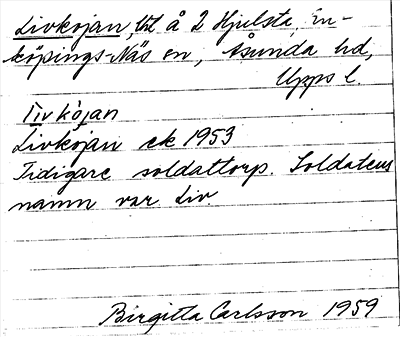 Livkojan, tht å 2 Hjulsta, En-
köpings-Näs sn, Åsunda hd,
Upps l.
Livkòjan
Livkojan ek 1953
Tidigare soldattorp. Soldatens
namn var Liv
Birgitta Carlsson 1959